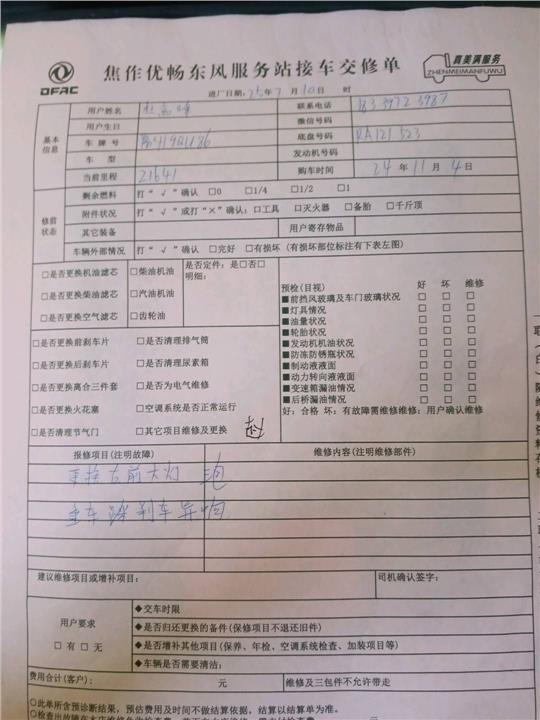 DFAC
焦作优畅东风服务站接车交修单
真美满服务
ZHENMEIMANFUWU
进厂日期: 25年7月10日 时
基本信息
用户姓名 联系电话 18339723987
用户生日 微信号码
车牌号 底盘号码 RA121523
车型 发动机号码
当前里程 21641 购车时间 24年11月4日
修前状态
剩余燃料 打“√”确认 □0 □1/4 □1/2 □1
附件状况 打“√”或打“×”确认: □工具 □灭火器 □备胎 □千斤顶
其它装备 用户寄存物品
车辆外部情况 打“√”确认 □完好 □有损坏 (有损坏部位标注有下表左图)
□是否更换机油滤芯 □柴油机油
□是否更换柴油滤芯 □汽油机油
□是否更换空气滤芯 □齿轮油
是否定件: 是□否□
明细:
□是否更换前刹车片 □是否清理排气筒
□是否更换后刹车片 □是否清理尿素箱
□是否更换离合三件套 □是否为电气维修
□是否更换火花塞 □空调系统是否正常运行
□是否清理节气门 □其它项目维修及更换
预检(目视) 好 坏 维修
■前挡风玻璃及车门玻璃状况 □ □ □
■灯具情况 □ □ □
■油量状况 □ □ □
■轮胎状况 □ □ □
■发动机机油状况 □ □ □
■防冻防锈瓶状况 □ □ □
■制动液液面 □ □ □
■动力转向液液面 □ □ □
■变速箱漏油情况 □ □ □
■后桥漏油情况 □ □ □
好: 合格 坏: 有故障需维修维修: 用户确认维修
报修项目(注明故障) 维修内容(注明维修部件)
更换左前大灯 泡
重车踩刹车异响
建议维修项目或增补项目: 司机确认签字:
用户要求
□有 □无
◆交车时限
◆是否归还更换的备件(保修项目不退还旧件)
◆是否增补其他项目(保养、年检、空调系统检查、加装项目等)
◆车辆是否需要清洁:
费用合计(客户): 元 维修及三包件不允许带走
○此单所含预诊断结果, 预估费用及时间不做结算依据, 结算以结算单为准。